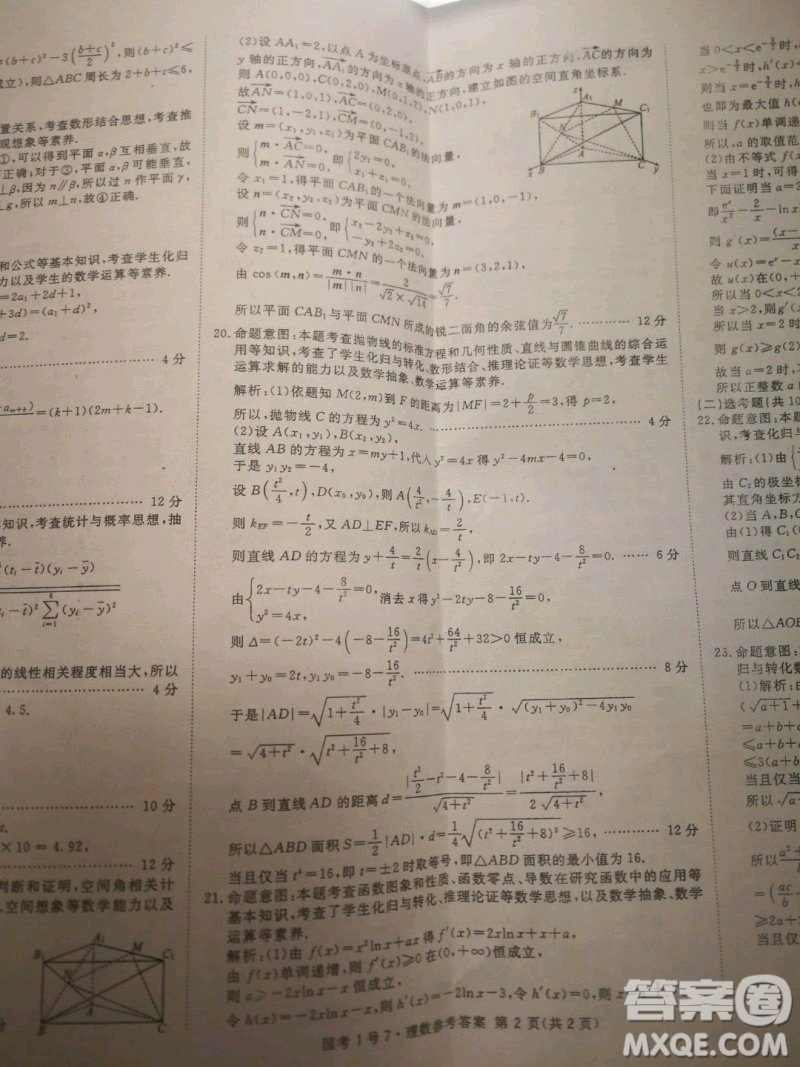 =(b+c)²-3((b+c)/2)², 则(b+c)²≤
成立), 则△ABC周长为2+b+c≤6,
置关系, 考查数形结合思想, 考查推
观想象等素养.
①, 可以得到平面α,β互相垂直, 故
正确; 对于③, 平面α,β可能垂直,
∥β, 因为n∥β, 所以过n作平面γ,
⊥g, 所以m⊥n, 故④正确.
和公式等基本知识, 考查学生化归
力以及学生的数学运算等素养.
=2a₁+2d+1,
+3d)=(a₁+d)²,
d=2.
4分
=(k+1)(2m+k).
12分
本知识, 考查统计与概率思想, 抽
养.
(tᵢ-t̄)(yᵢ-ȳ)
的线性相关程度相当大, 所以
4分
4.5.
10分
t.
×10=4.92,
12分
判断和证明, 空间角相关计
空间想象等数学能力以及
B₁ A₁ M C₁
N
B C
(2)设AA₁=2, 以点A为坐标原点, AB的方向为x轴的正方向, AC的方向为
y轴的正方向, AA₁的方向为z轴的正方向, 建立如图的空间直角坐标系.
则A(0,0,0), C(0,2,0), M(0,1,2), N(1,0,1),
故AN=(1,0,1), AC=(0,2,0).
CN=(1,-2,1), CM=(0,-1,2).
设m=(x₁,y₁,z₁)为平面CAB₁的法向量,
则{m·AC=0, m·AN=0, 即{2y₁=0, x₁+z₁=0.
令x₁=1, 得平面CAB₁的一个法向量为m=(1,0,-1),
设n=(x₂,y₂,z₂)为平面CMN的法向量,
则{n·CN=0, n·CM=0, 即{x₂-2y₂+z₂=0, -y₂+2z₂=0.
令z₂=1, 得平面CMN的一个法向量为n=(3,2,1),
由cos⟨m,n⟩=m·n/|m||n|=2/(√2×√14)=√7/7.
所以平面CAB₁与平面CMN所成的锐二面角的余弦值为√7/7. 12分
20. 命题意图: 本题考查抛物线的标准方程和几何性质、直线与圆锥曲线的综合运
用等知识, 考查了学生化归与转化、数形结合、推理论证等数学思想, 考查学生
运算求解的能力以及数学抽象、数学运算等素养.
解析: (1)依题知M(2,m)到F的距离为|MF|=2+p/2=3, 得p=2,
所以, 抛物线C的方程为y²=4x. 4分
(2)设A(x₁,y₁), B(x₂,y₂),
直线AB的方程为x=my+1, 代入y²=4x得y²-4my-4=0,
于是y₁y₂=-4,
设B(t²/4,t), D(x₀,y₀), 则A(4/t²,-4/t), E(-1,t).
则k_EF=-t/2, 又AD⊥EF, 所以k_AD=2/t,
则直线AD的方程为y+4/t=2/t(x-4/t²), 即2x-ty-4-8/t²=0. 6分
由{2x-ty-4-8/t²=0, y²=4x, 消去x得y²-2ty-8-16/t²=0,
则Δ=(-2t)²-4(-8-16/t²)=4t²+64/t²+32>0恒成立,
y₁+y₀=2t, y₁y₀=-8-16/t². 8分
于是|AD|=√(1+t²/4)·|y₁-y₀|=√(1+t²/4)·√((y₁+y₀)²-4y₁y₀)
=√(4+t²)·√(t²+16/t²+8),
点B到直线AD的距离d=|t²/2-t²-4-8/t²|/√(4+t²)=|t²+16/t²+8|/(2√(4+t²)),
所以△ABD面积S=1/2|AD|·d=1/4√((t²+16/t²+8)³)≥16, 12分
当且仅当t⁴=16, 即t=±2时取等号, 即△ABD面积的最小值为16.
21. 命题意图: 本题考查函数图象和性质、函数零点、导数在研究函数中的应用等
基本知识, 考查了学生化归与转化、推理论证等数学思想, 以及数学抽象、数学
运算等素养.
解析: (1)由f(x)=x²lnx+ax得f′(x)=2xlnx+x+a,
由f(x)单调递增, 则f′(x)≥0在(0,+∞)恒成立,
则a≥-2xlnx-x恒成立,
令h(x)=-2xlnx-x, 则h′(x)=-2lnx-3, 令h′(x)=0, 则x=
B₁ A₁ M C₁
N
B A C
x y z
当0<x<
时, h′(x)
也即为最大值h(
则当f(x)单调递
所以, a的取值范
(2)由不等式f(x)
当x=1时, 可得
下面证明当a=2
则g′(x)=
令u(x)=
故u(x)在(0,
所以当0<x<2
当x>2, 则g′(
则g(x)≥g(2)
故当a=2时,
所以正整数a
(二)选考题(共10
22. 命题意图: 本题
识, 考查化归与
解析: (1)由
由C₂的极坐标
其直角坐标方
(2)当A,B,C
由(1)得C(
则直线C₁C₂
点O到直线
所以△AOB
23. 命题意图:
归与转化数
(1)解析:
(√a+1+
=a+b+
≤a+b+
≤3(a+b
当且仅当
所以√a+
(2)证明
≥2a+
当且仅
国考1号7·理数参考答案 第2页(共2页)
答案圈
MXQE.COM